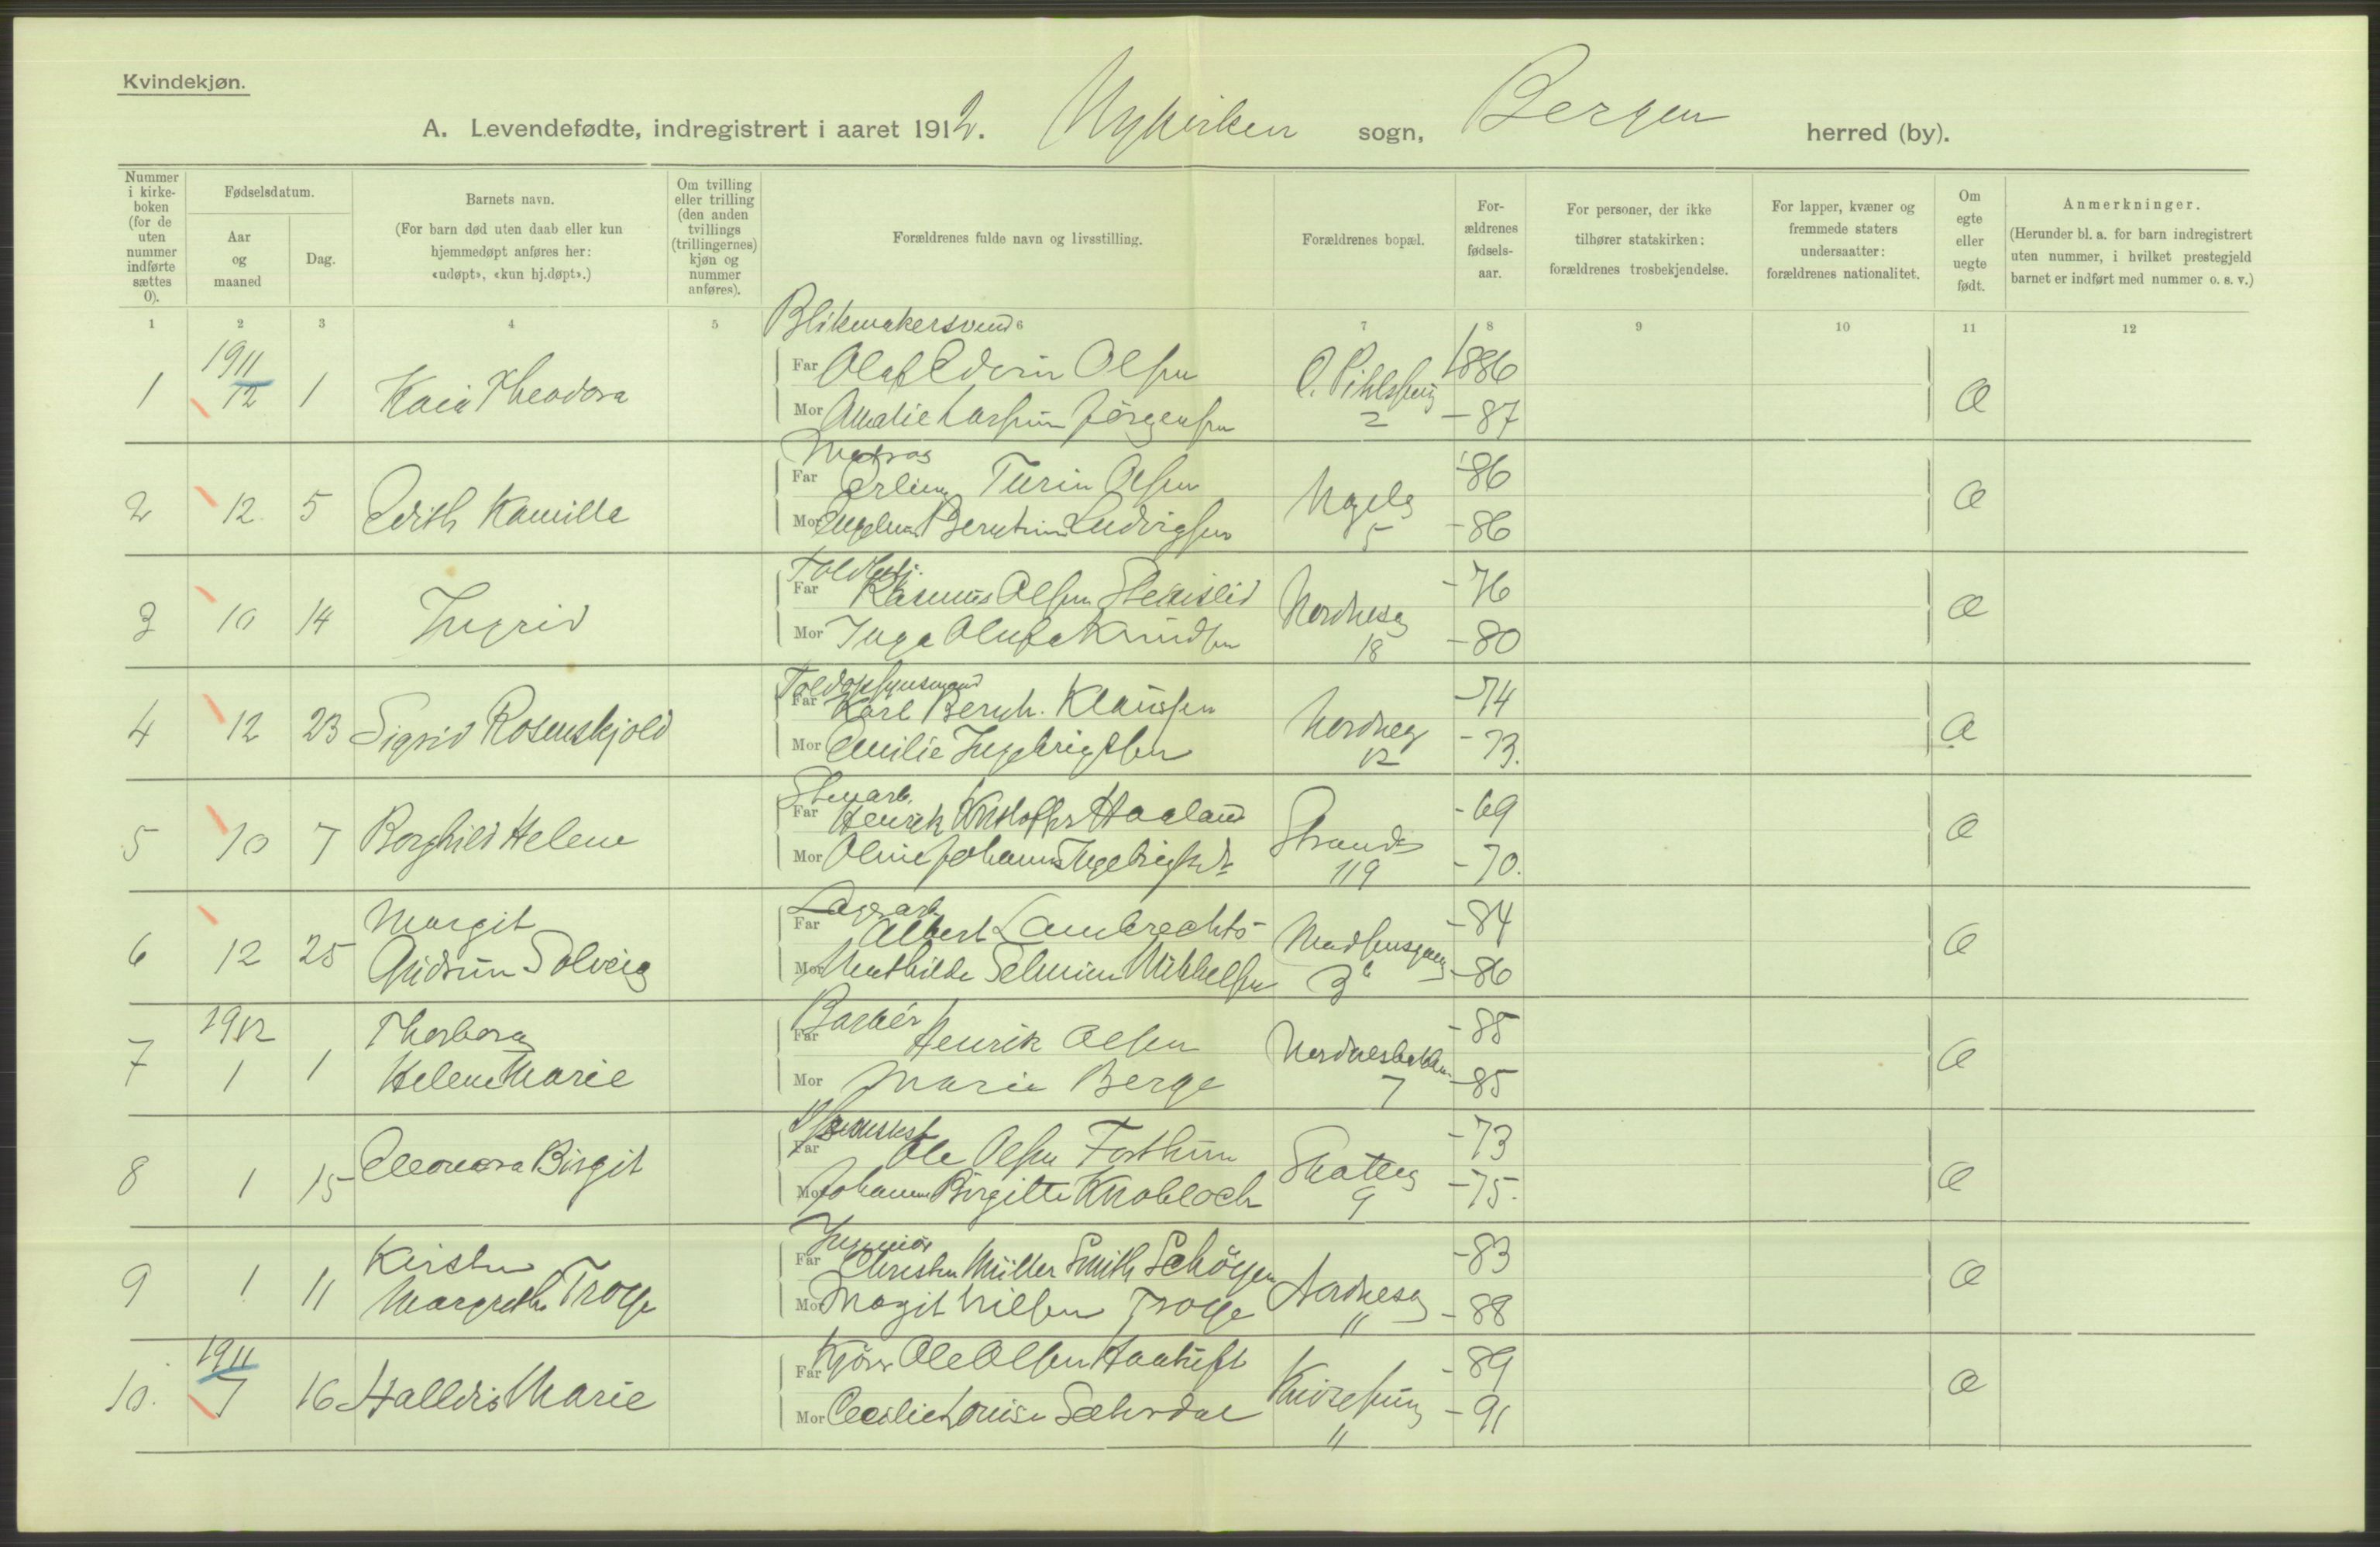 Kvindekjøn.
A. Levendefødte, indregistrert i aaret 1912. Nykirken sogn, Bergen herred (by).
Nummer i kirke-boken (for de uten nummer indførte sættes 0).
Fødselsdatum.
Aar og maaned
Dag.
Barnets navn.
(For barn død uten daab eller kun hjemmedøpt anføres her: «udøpt», «kun hj.døpt».)
Om tvilling eller trilling (den anden tvillings (trillingernes) kjøn og nummer anføres).
Forældrenes fulde navn og livsstilling.
Forældrenes bopæl.
For-ældrenes fødsels-aar.
For personer, der ikke tilhører statskirken: forældrenes trosbekjendelse.
For lapper, kvæner og fremmede staters undersaatter: forældrenes nationalitet.
Om egte eller uegte født.
Anmerkninger.
(Herunder bl. a. for barn indregistrert uten nummer, i hvilket prestegjeld barnet er indført med nummer o. s. v.)
1 2 3 4 5 6 7 8 9 10 11 12
Blikmakersvend
1 1911 12 1 Kaia Theodora Far Olaf Edvin Olsen 1886
Mor Amalie Jørgensen 2 - 87 Æ
Matros
2 12 5 Edith Kamilla Far Erling Olsen -86
Mor Ludvigsen Nagelg 5 - 86 Æ
3 10 14 Ingrid Far Rasmus Olsen - 76
Mor Inga Olufa Knudsen Nordnesg 18 - 80 Æ
Toldopsynsmand
4 12 23 Sigrid Rosenskjold Far Karl Bernh. Klaussen -74
Mor Emilie Ingebrigtsen Nordnesg 12 - 73. Æ
Stenarb.
5 10 7 Borghild Helene Far Henrik Kristoffer Haaland - 69
Mor Oline Johanne Ingebrigtsdr Strandg 119 - 70. Æ
Lagerarb.
6 12 25 Margit Gudrun Solveig Far Albert Lambrechts - 84
Mor Mathilde Selmine Mikkelsen 3 b - 86 Æ
Barber
7 1912 1 1 Thorborg Helene Marie Far Henrik Olsen - 85
Mor Marie Berge Nordnesbakken 7 - 85 Æ
8 1 15 Eleonora Birgit Far Ole Olsen Forthun - 73
Mor Johanne Birgitte Knobloch Skotteg 9 - 75. Æ
Ingeniør
9 1 11 Kirsten Margrethe Trolle Far Christen Müller Smith Schöyen - 83
Mor Magit Nilsen Trolle Nordnesg " - 88 Æ
10. 1911 7 16 Halldis Marie Far Kjører Ole Olsen - 89
Mor Cecilie Louise " - 91 Æ